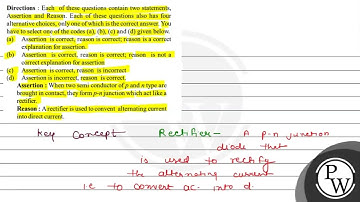 Directions : Each of these questions contain two statements,
Assertion and Reason. Each of these questions also has four
alternative choices, only one of which is the correct answer. You
have to select one of the codes (a), (b), (c) and (d) given below.
(a) Assertion is correct, reason is correct; reason is a correct
explanation for assertion.
(b) Assertion is correct, reason is correct; reason is not a
correct explanation for assertion
(c) Assertion is correct, reason is incorrect
(d) Assertion is incorrect, reason is correct.
Assertion : When two semi conductor of p and n type are
brought in contact, they form p-n junction which act like a
rectifier.
Reason : A rectifier is used to convent alternating current
into direct current.
Key Concept Rectifier - A p-n junction
diode that
is used to rectify
the alternating current
i.e to convert ac. into d.
PW